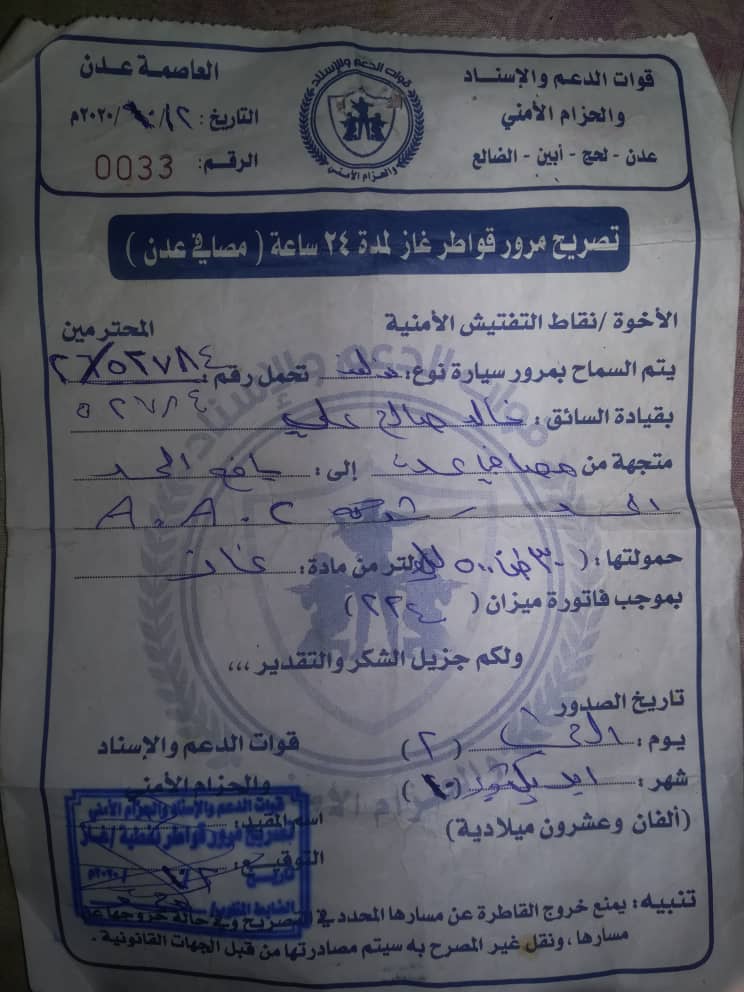 قوات الدعم والإسناد
والحزام الأمني
عدن - لحج - أبين - الضالع
قوات الدعم والإسناد
والحزام الأمني
العاصمة عدن
التاريخ: ٢/١٠/٢٠٢٠م
الرقم: 0033
تصريح مرور قواطر غاز لمدة ٢٤ ساعة (مصافي عدن)
الأخوة / نقاط التفتيش الأمنية المحترمين
يتم السماح بمرور سيارة نوع: تحمل رقم: ٢٦/٥٢٧٨٤
بقيادة السائق: خالد صالح علي ٥٢٧٨٤
متجهة من مصافي عدن إلى: يافع الحد
الحد شركة A.A.C
حمولتها: (٣٠ طن ٥٠٠ لتر من مادة: غاز
بموجب فاتورة ميزان (٢٢٤)
ولكم جزيل الشكر والتقدير ،،،
تاريخ الصدور
يوم: (٢)
شهر: اكتوبر (١٠)
(ألفان وعشرون ميلادية)
قوات الدعم والإسناد
والحزام الأمني
اسم المقيد:
التوقيع:
قوات الدعم والإسناد والحزام الأمني
تصريح مرور قواطر نفطية / غاز
تاريخ / /٢٠٢٠م
الضابط المناوب/
تنبيه: يمنع خروج القاطرة عن مسارها المحدد في التصريح وفي حالة خروجها عن
مسارها، ونقل غير المصرح به سيتم مصادرتها من قبل الجهات القانونية.